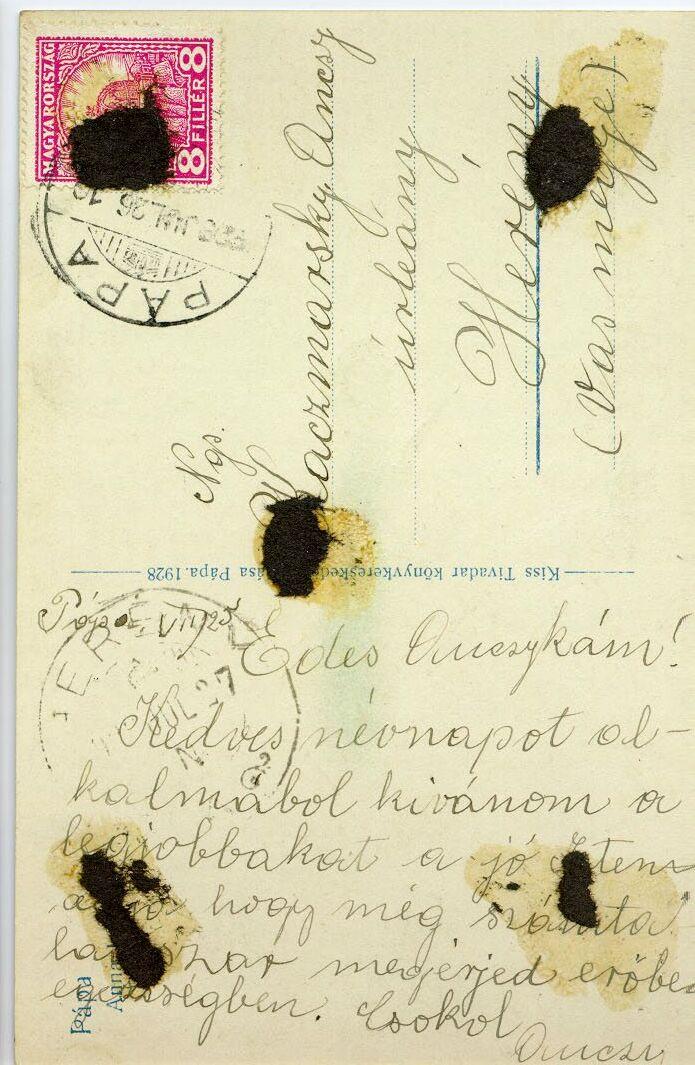 MAGYARORSZÁG
8 FILLÉR 8
PÁPA
Ngs.
Kaczmarsky Ancsy
úrleány
Hereny
(Vas megye)
Kiss Tivadar könyvkeresked ása Pápa. 1928
Pápa VII/25
JUL 27
Édes Ancsykám!
Kedves névnapot al-
kalmából kivánom a
legjobbakat a jó Isten
hogy még számta
megérjed erőben
egészségben. Csokol
Ancsy
Pápa